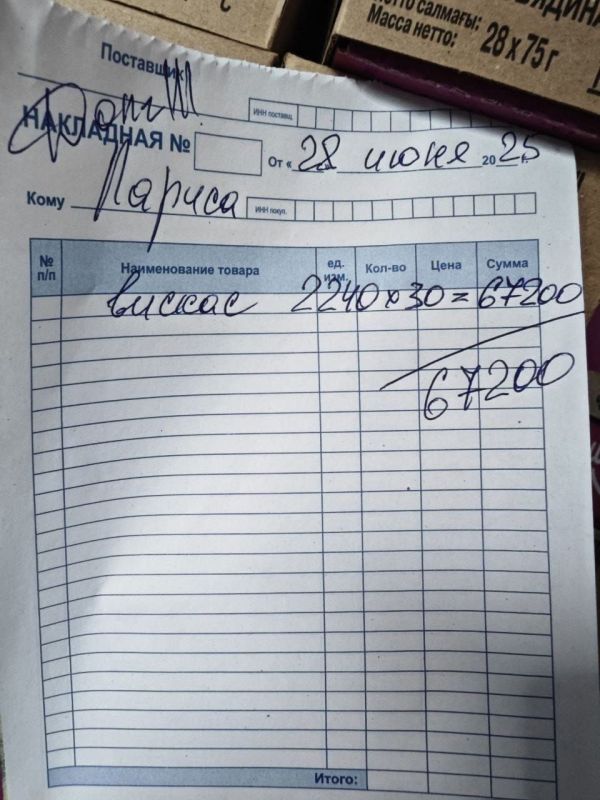 Нетто салмағы:
Масса нетто: 28 х 75 г
Поставщик
ИНН поставщ.
НАКЛАДНАЯ №
От « 28 июне 20 25
Кому Лариса
ИНН покуп.
№ п/п Наименование товара ед. изм. Кол-во Цена Сумма
вискас 2240 х 30 = 67200
67200
Итого: